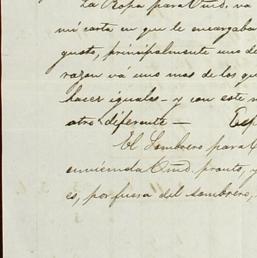 La Ropa para Vmd. va
mi carta en que le encargaba
gusto, principalmente uno de
razon vá uno mas de los qu
hacer iguales - y con este m
otro diferente — Esp
El Sombrero para
enviemela Vmd. pronto, y
es, por fuera del sombrero,